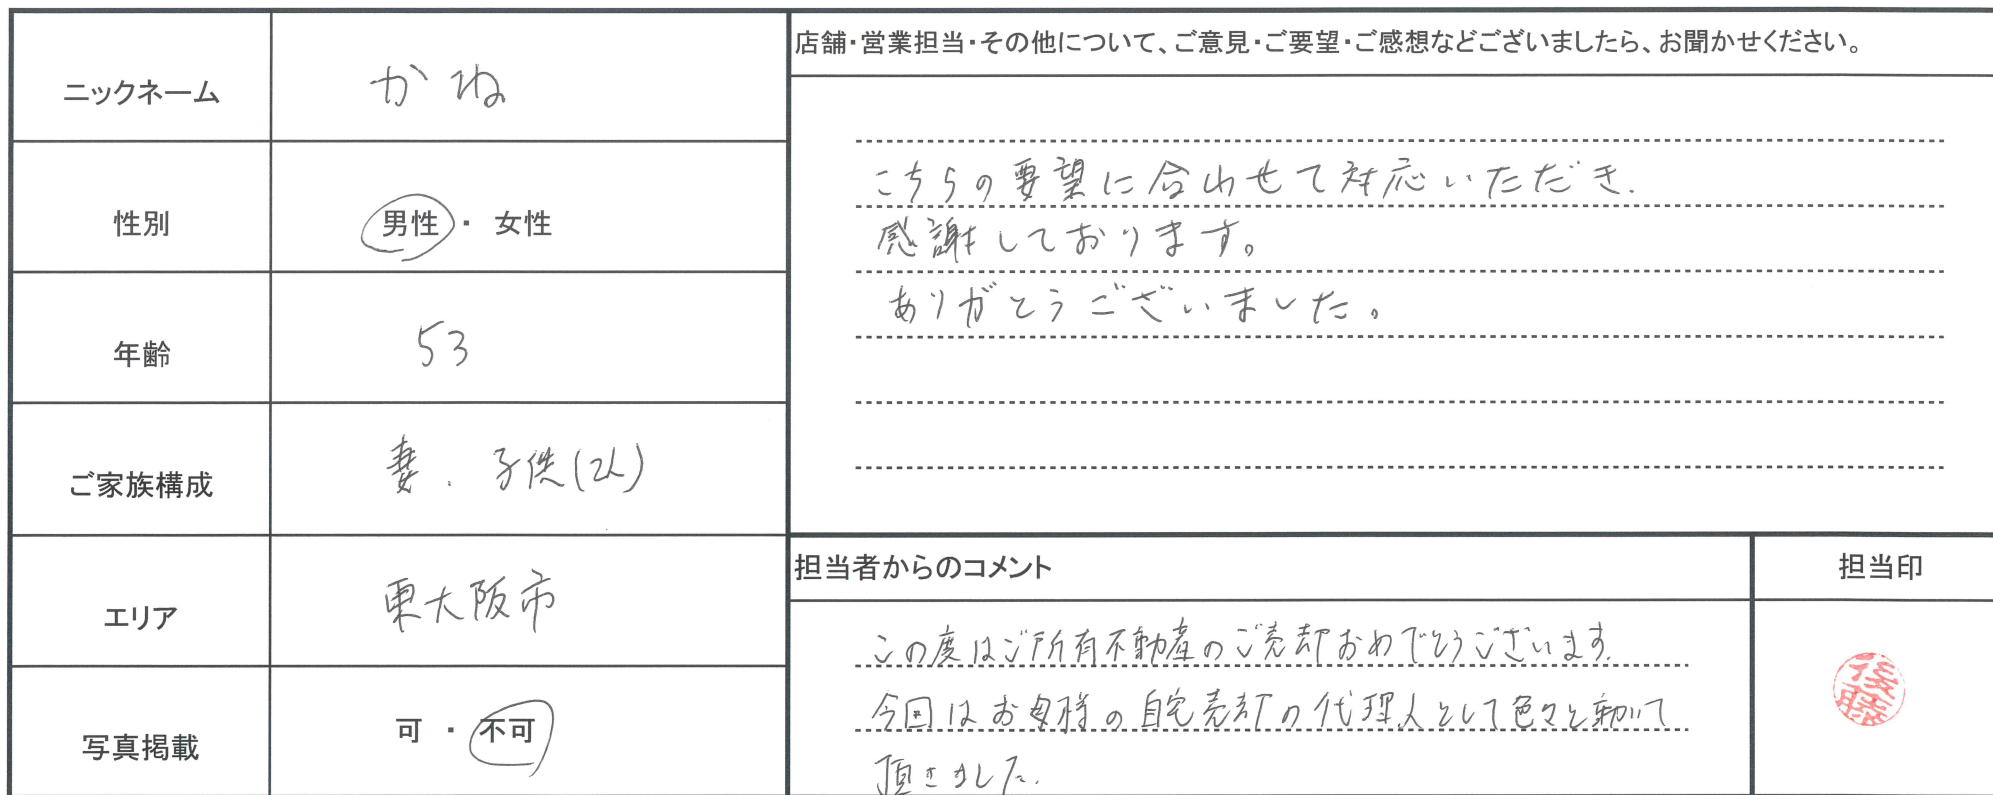 ニックネーム
かね
性別
男性・女性
年齢
53
ご家族構成
妻、子供(2人)
エリア
東大阪市
写真掲載
可・不可
店舗・営業担当・その他について、ご意見・ご要望・ご感想などございましたら、お聞かせください。
こちらの要望に合わせて対応いただき、
感謝しております。
ありがとうございました。
担当者からのコメント
この度はご所有不動産のご売却おめでとうございます。
今回はお母様の自宅売却の代理人として色々と動いて
頂きました。
担当印
後藤